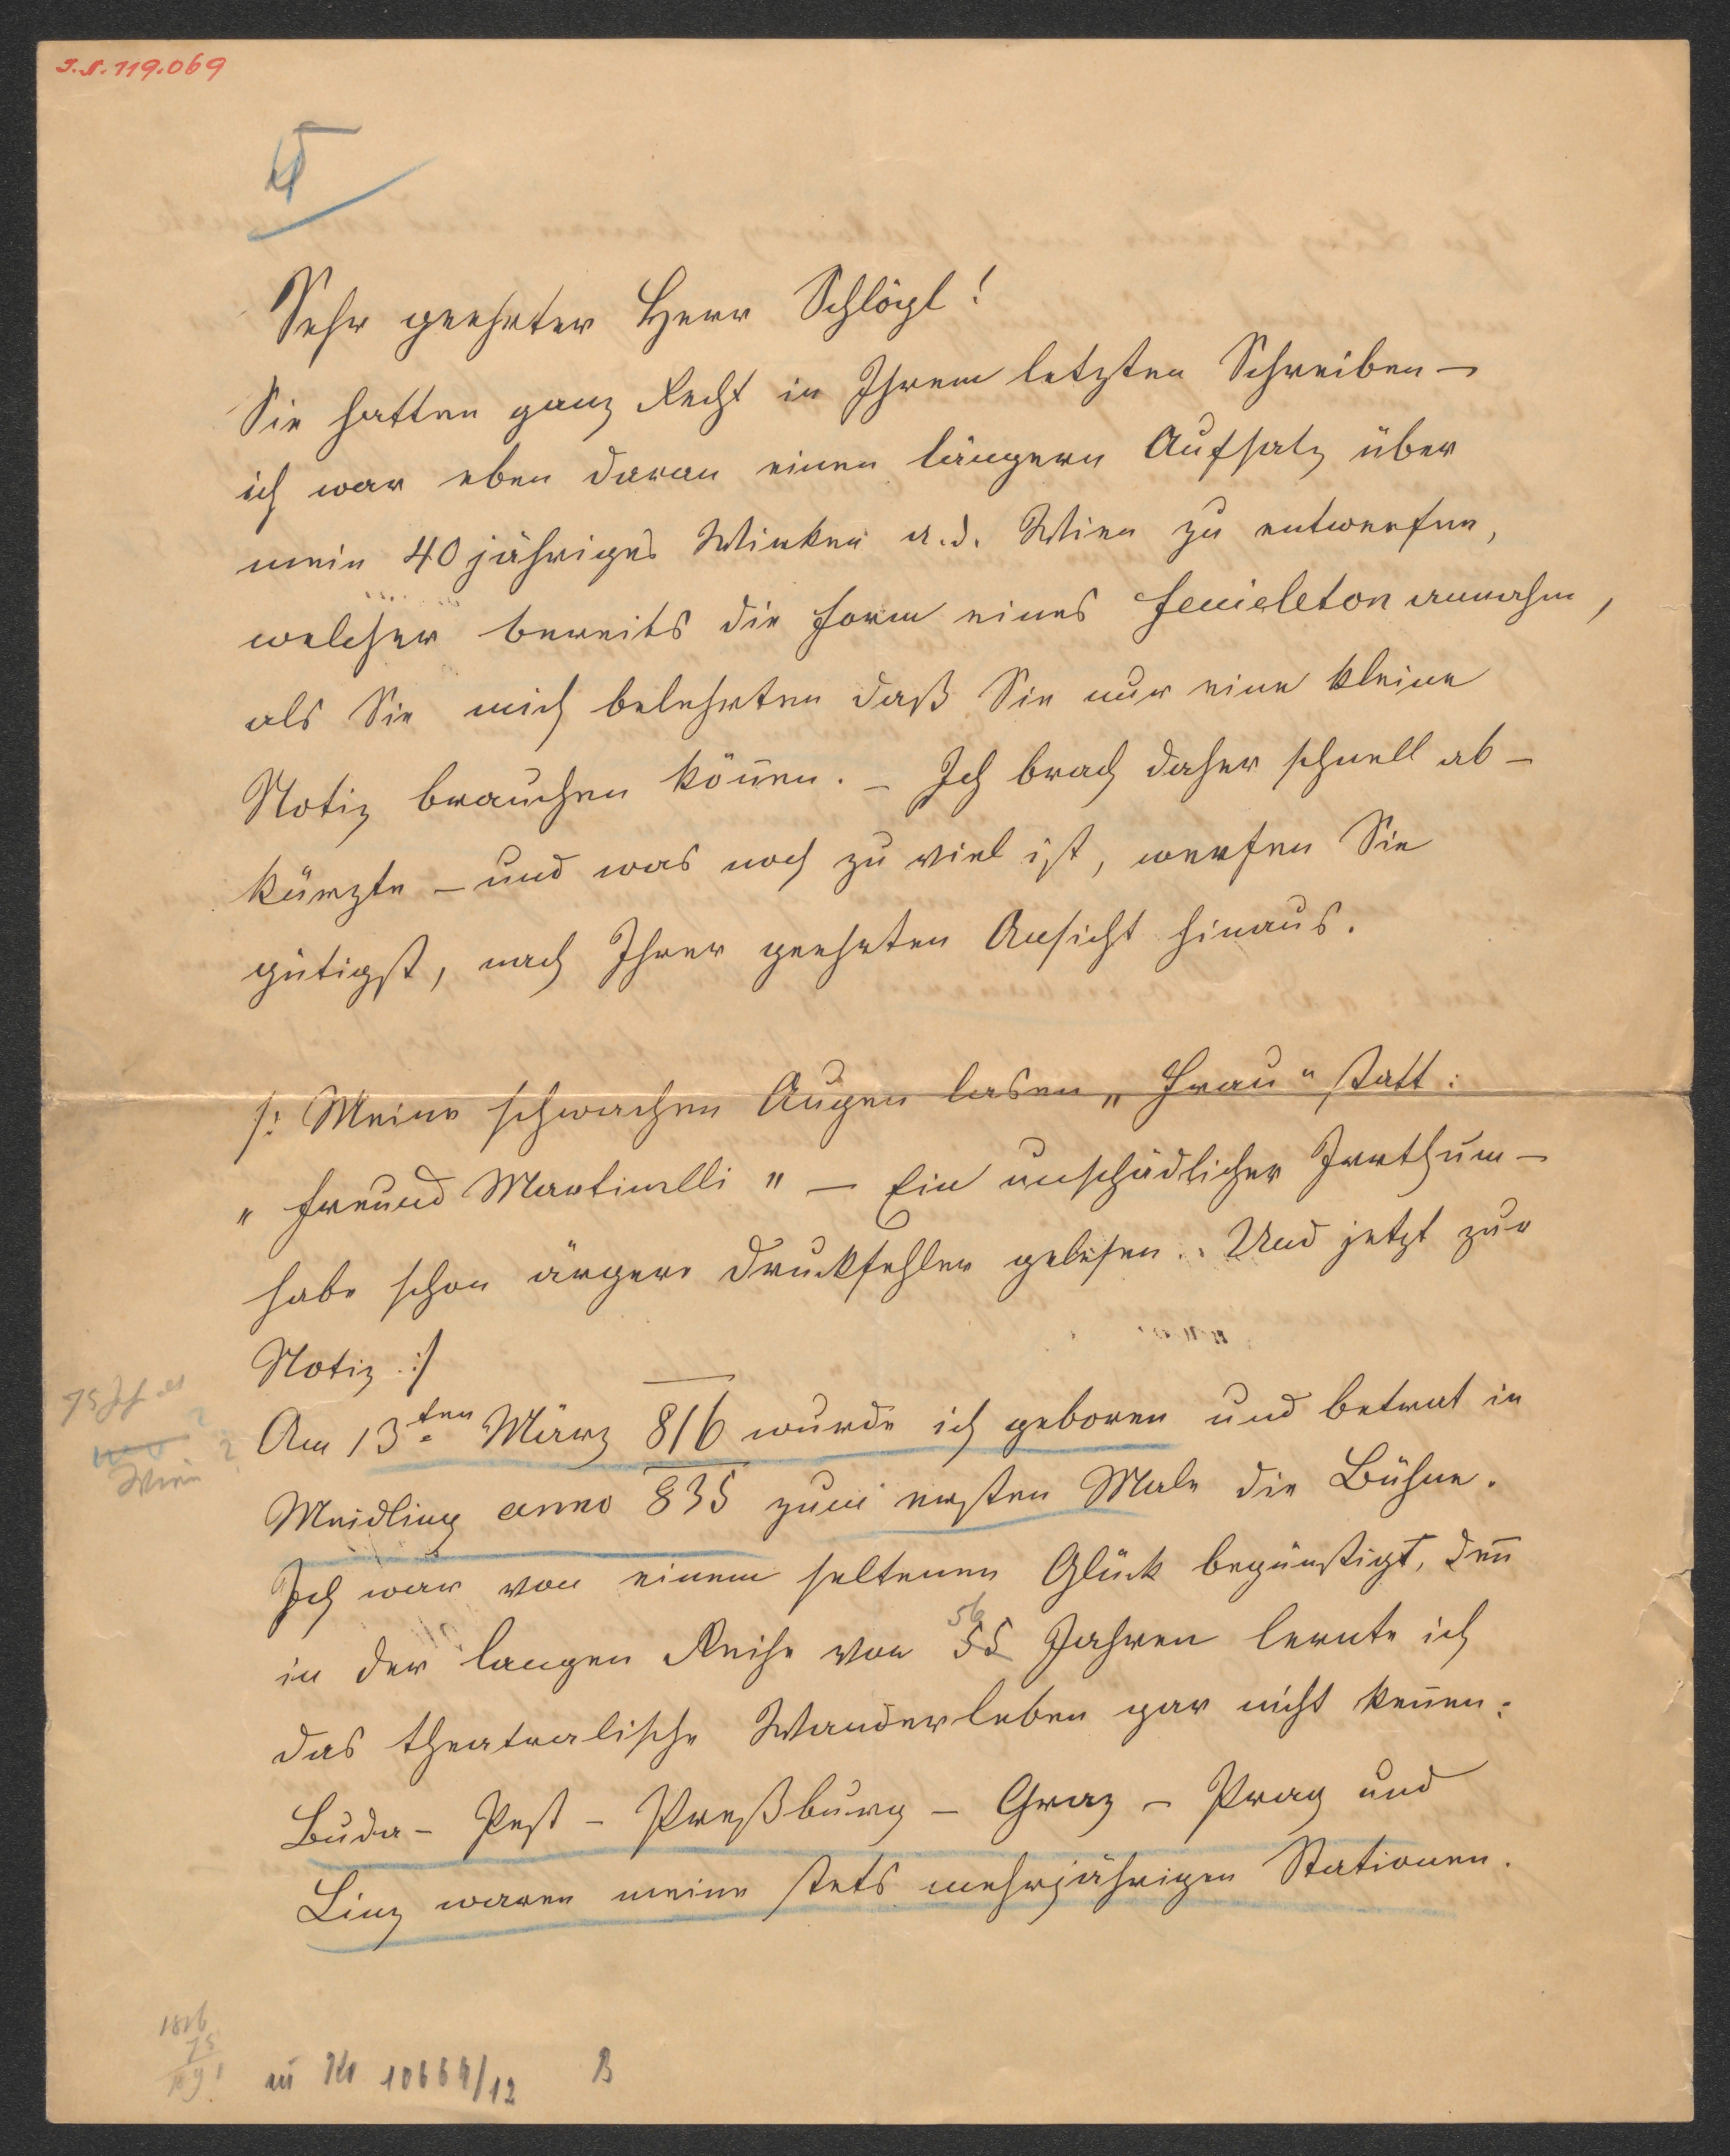 I.N. 119.069
Sehr geehrter Herr Schlögl!
Sie hatten ganz Recht in Ihrem letzten Schreiben –
ich war eben daran einen längern Aufsatz über
mein 40 jähriges Wirken a. d. Wien zu entwerfen,
welcher bereits die Form eines Feuieleton annahm,
als Sie mich belehrten daß Sie nur eine kleine
Notiz brauchen können. – Ich brach daher schnell ab –
kürzte – und was noch zu viel ist, werfen Sie
gütigst, nach Ihrer geehrten Ansicht hinaus.
/: Meine schwachen Augen lasen „Frau“ statt:
„Freund Martinelli“ – Ein unschädlicher Irrthum –
habe schon ärgere Druckfehler gelesen. Und jetzt zur
Notiz :/
75
Wien ?
Am 13ten März 816 wurde ich geboren und betrat in
Meidling anno 835 zum ersten Male die Bühne.
Ich war von einem seltenen Glück begünstigt, denn
56
in der langen Reihe von 55 Jahren lernte ich
das theatralische Wanderleben gar nicht kennen:
Buda – Pest – Preßburg – Graz – Prag und
Linz waren meine stets mehrjährigen Stationen.
1816
75
zu Nr 10664/12 B